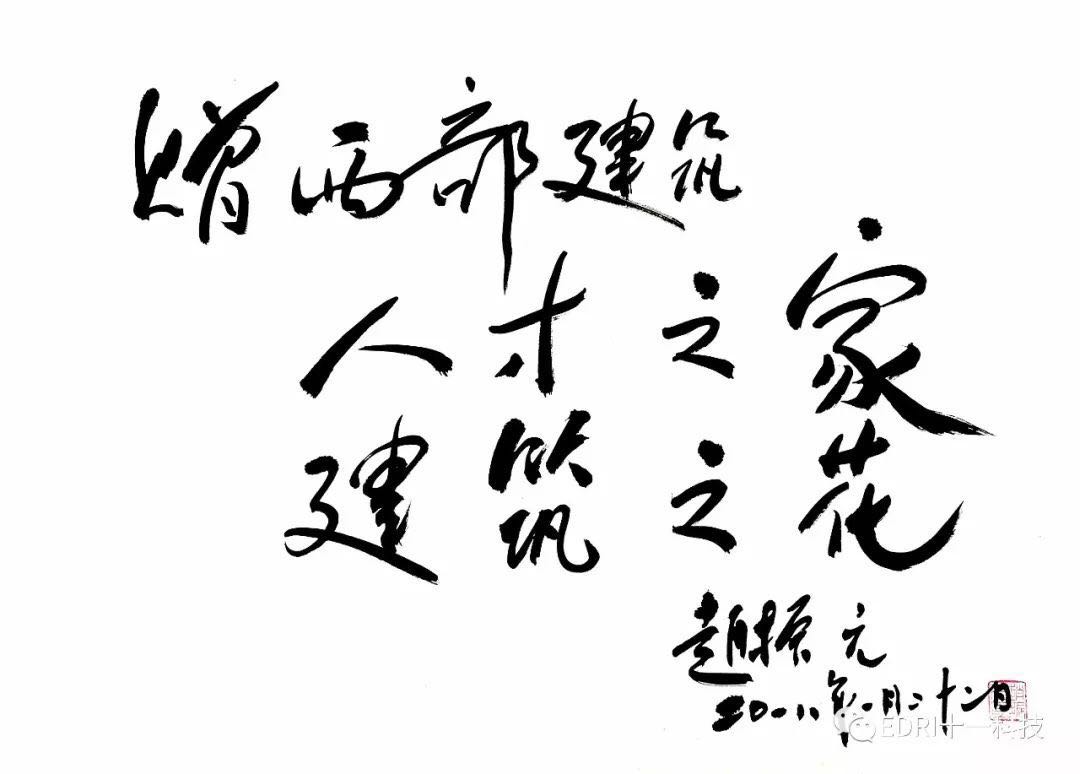 赠西部建筑
人才之家
建筑之花
赵振元
二〇一八年一月二十二日
EDRI十一科技